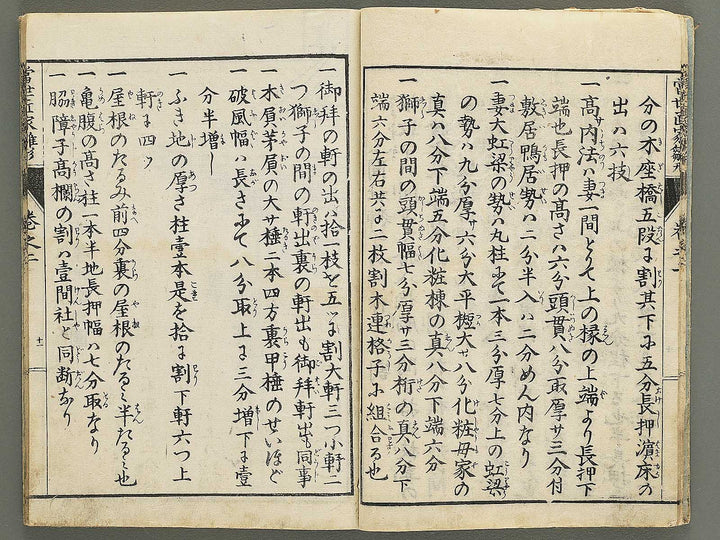 分の木座橋五段に割其下に五分長押濱床の
出ハ六技
一高内法ハ妻一間とりて上の縁の上端より長押下
端也長押の高さハ六分頭貫八分取厚サ三分付
敷居鴨居勢ハ二分半入ハ二分めん内なり
一妻大虹梁の勢ハ丸柱にて一本三分厚七分上の虹梁
の勢ハ九分厚サ六分大平樬大サ八分化粧母家の
真ハ八分下端五分化粧棟の真八分下端六分
一獅子の間の頭貫幅七分厚サ三分桁の真八分下
端六分左右共に二枝割木連格子に組合る也
一御拜の軒の出ハ拾一枝と五ツに割大軒三つ小軒二
つ獅子の間の軒出裏の軒出も御拜軒出も同事
一木屓茅屓の大サ棰二本四方裏甲棰のせいほど
一破風幅ハ長さにて八分取上に三分増下に壹
分半増し
一ふき地の厚さ柱壹本是を拾に割下軒六つ上
軒に四ツ
一屋根のたるみ前四分裏の屋根のたるミ半たるミ也
一亀腹の髙さ柱一本半地長押幅ハ七分取なり
一脇障子高欄の割ハ壹間社と同断なり
當世匠家雛形
卷之二
十一